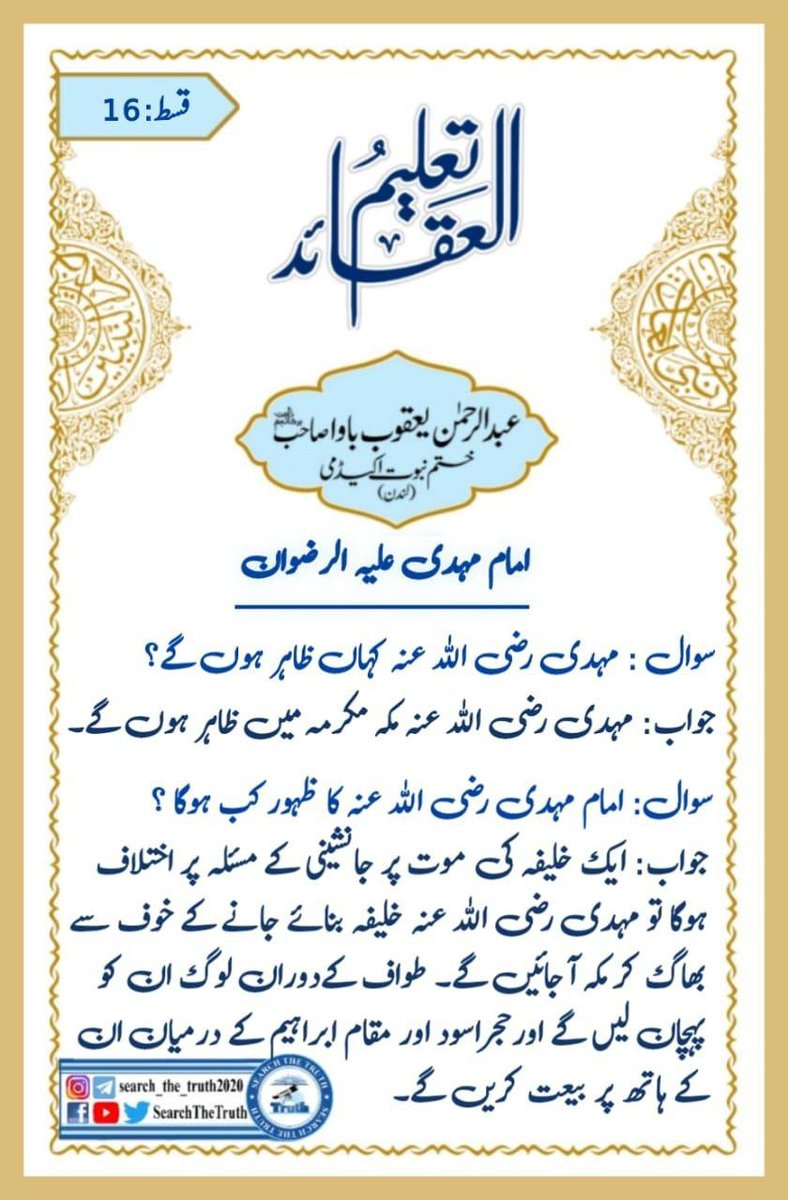 قسط:16
تعلیمُ العقائد
عبدالرحمٰن یعقوب باوا صاحب
ختم نبوت اکیڈمی
(لندن)
امام مہدی علیہ الرضوان
سوال : مہدی رضی اللہ عنہ کہاں ظاہر ہوں گے؟
جواب: مہدی رضی اللہ عنہ مکہ مکرمہ میں ظاہر ہوں گے۔
سوال: امام مہدی رضی اللہ عنہ کا ظہور کب ہوگا ؟
جواب: ایک خلیفہ کی موت پر جانشینی کے مسئلہ پر اختلاف
ہوگا تو مہدی رضی اللہ عنہ خلیفہ بنائے جانے کے خوف سے
بھاگ کر مکہ آجائیں گے۔ طواف کے دوران لوگ ان کو
پہچان لیں گے اور حجراسود اور مقام ابراہیم کے درمیان ان
کے ہاتھ پر بیعت کریں گے۔
search_the_truth2020
SearchTheTruth
SEARCH THE TRUTH
Truth
SEARCH THE TRUTH